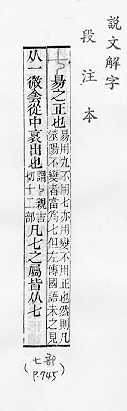 說文解字
段注本
昜之正也易用九不用七亦用變不用正也然則凡
筮陽不變者當爲七但左傳國語未之見
从一微侌從中衺出也親吉
切十二部凡七之屬皆从七
七部
(P.745)